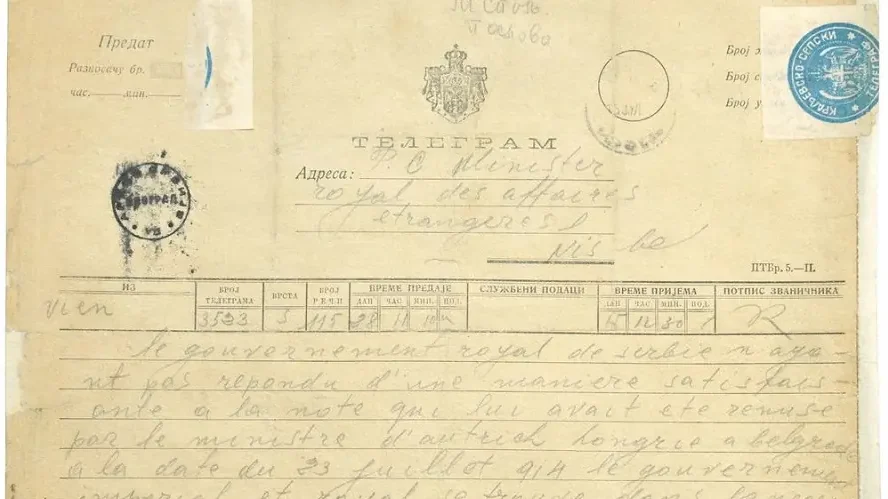 Предат
Разносачу бр.
час. мин.
Број
Број
Број
КРАЉЕВСКО-СРПСКИ ТЕЛЕГРАФ
ТЕЛЕГРАМ
Адреса: Minister
royal des affaires
etrangeres
Nis
ПТБр. 5.—II.
ИЗ БРОЈ ТЕЛЕГРАМА ВРСТА БРОЈ РЕЧИ ВРЕМЕ ПРЕДАЈЕ СЛУЖБЕНИ ПОДАЦИ ВРЕМЕ ПРИЈЕМА ПОТПИС ЗВАНИЧНИКА
ДАН ЧАС МИН. ПОД. ДАН ЧАС МИН. ПОД.
Vien 3523 S 115 28 11 10 12 30
le gouvernement royal de serbie n aya-
nt pas repondu d'une maniere satisfais-
ante a la note qui lui avait ete remise
par le ministre d'autrich hongrie a belgrade
a la date du 23 juillot 914 le gouvernement
imperial et royal se trouve dans